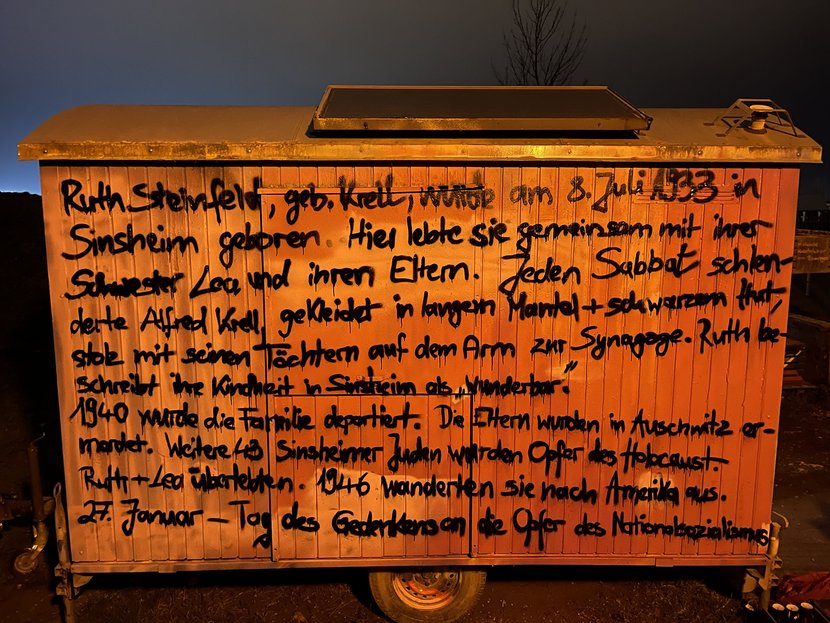 Ruth Steinfeld, geb. Krell, wurde am 8. Juli 1933 in
Sinsheim geboren. Hier lebte sie gemeinsam mit ihrer
Schwester Lea und ihren Eltern. Jeden Sabbat schlen-
derte Alfred Krell, gekleidet in langem Mantel + schwarzem Hut,
stolz mit seinen Töchtern auf dem Arm zur Synagoge. Ruth be-
schreibt ihre Kindheit in Sinsheim als „wunderbar."
1940 wurde die Familie deportiert. Die Eltern wurden in Auschwitz er-
mordet. Weitere Sinsheimer Juden wurden Opfer des Holocaust.
Ruth + Lea überlebten. 1946 wanderten sie nach Amerika aus.
27. Januar – Tag des Gedenkens an die Opfer des Nationalsozialismus